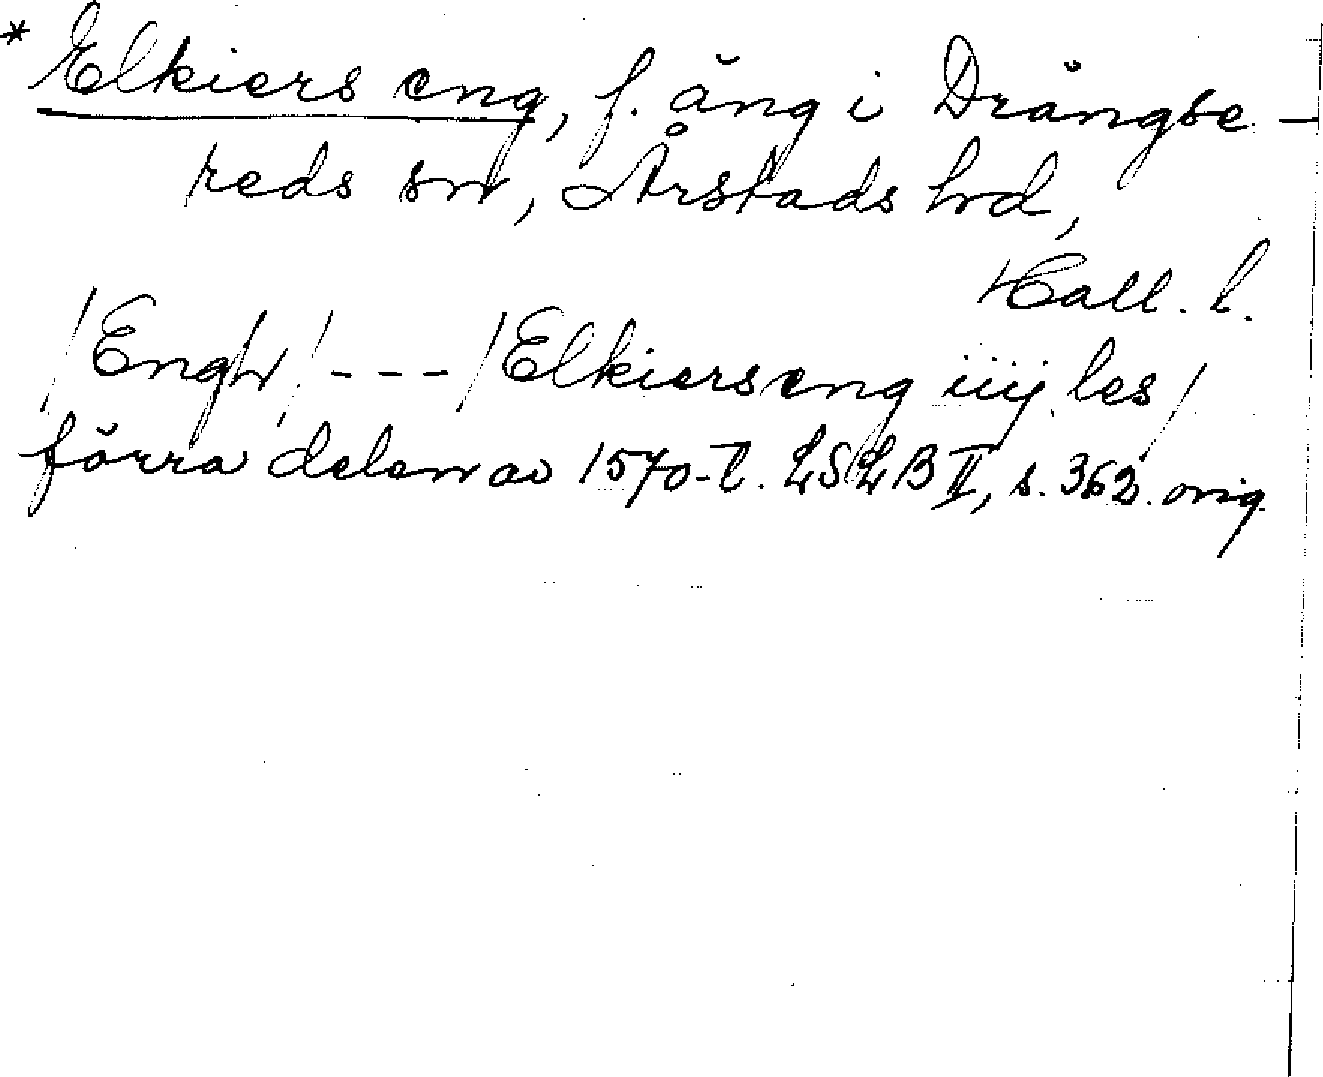 * Elkiers eng, f. äng i Drängse-
reds sn, Årstads hd,
Hall. l.
/Engh/ - - - /Elkierseng iiij les/
förra delen av 1570-t. LSLB II, s. 362. orig.